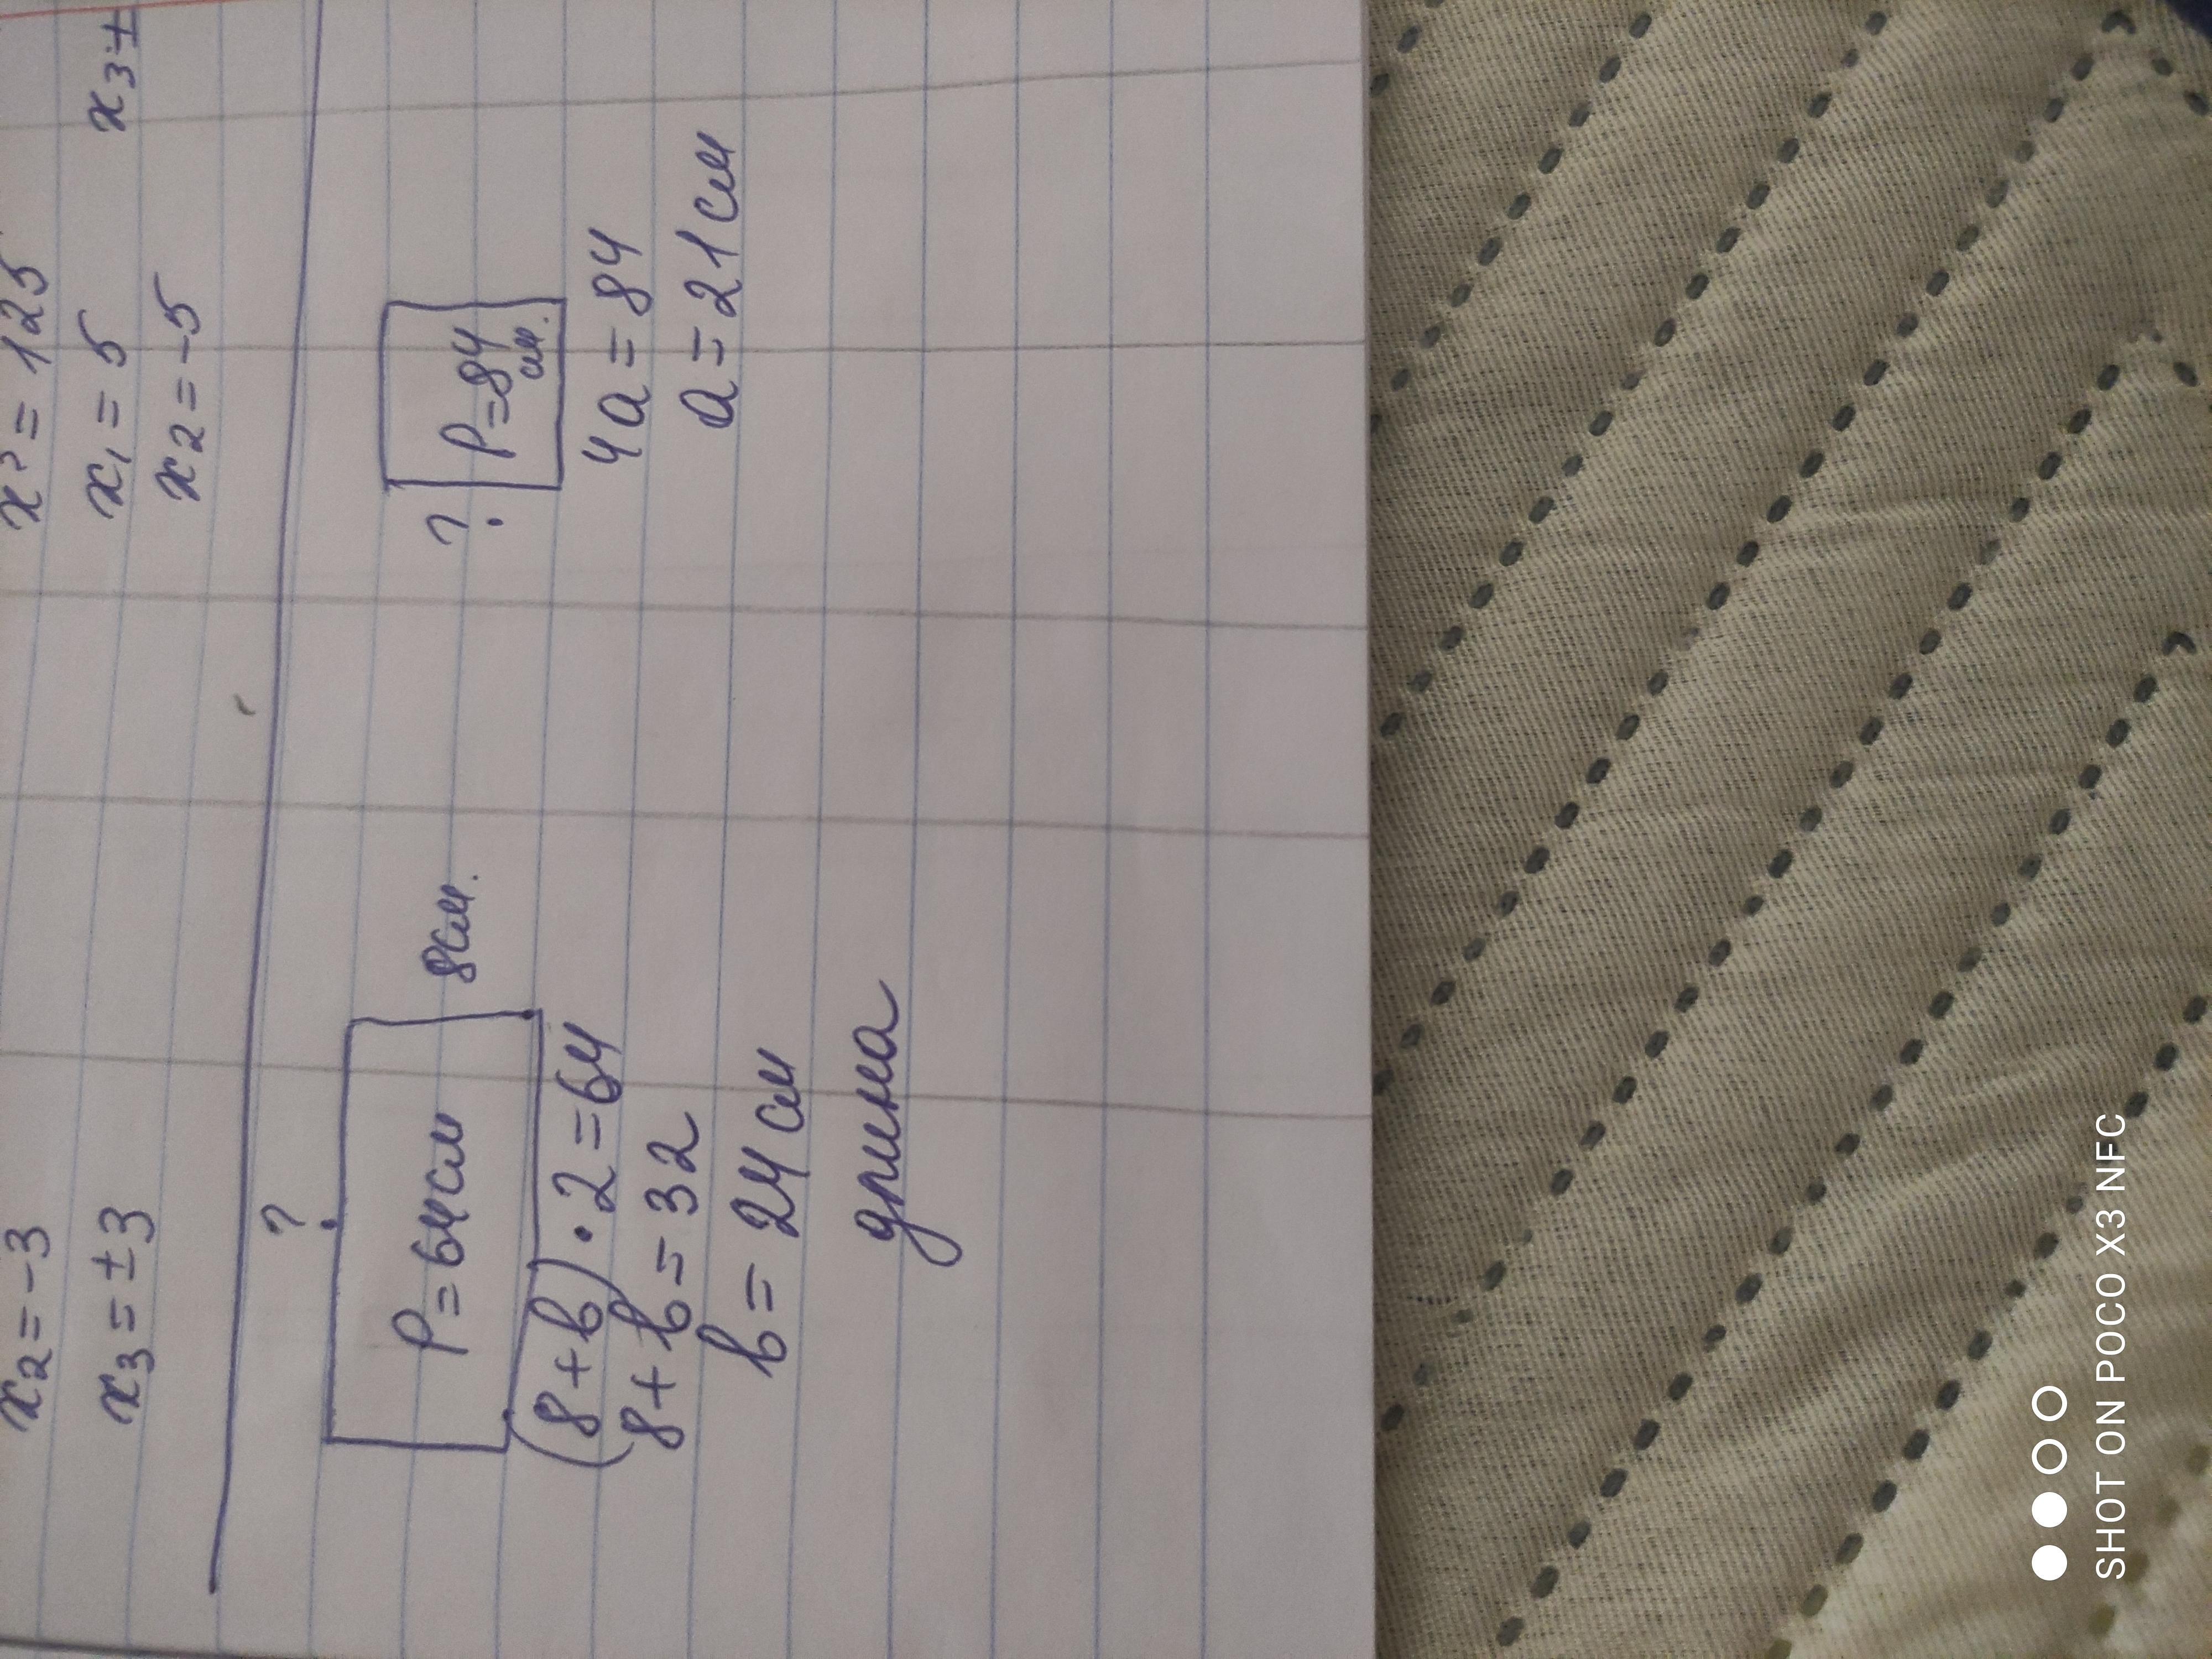 x³ = 125
x₂ = -3
x₁ = 5
x₃ = ±3
x₂ = -5
x₃ ±
?
P = 64 см
8 см.
(8 + b) · 2 = 64
8 + b = 32
b = 24 см
длина
?
P = 84
см.
4a = 84
a = 21 см
SHOT ON POCO X3 NFC